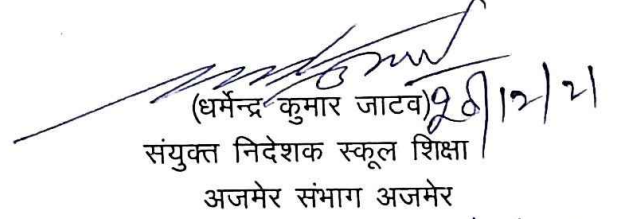 (धर्मेन्द्र कुमार जाटव)
संयुक्त निदेशक स्कूल शिक्षा
अजमेर संभाग अजमेर